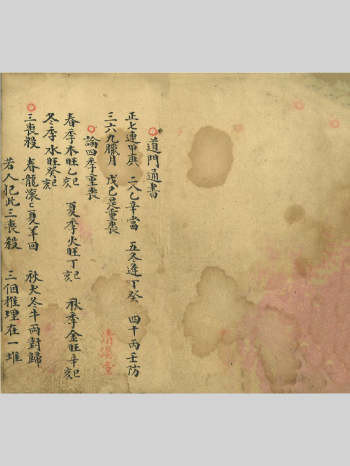 道門通書
正七連甲庚 二八乙辛當 五冬逢丁癸 四十丙壬防
三六九臘月 戊己是重喪
論四季重喪
春季木旺乙亥 夏季火旺丁亥 秋季金旺辛亥
冬季水旺癸亥
三喪殺 春龍滾滾夏羊回 秋犬冬牛兩對歸
若人犯此三喪殺 三個推埋在一堆